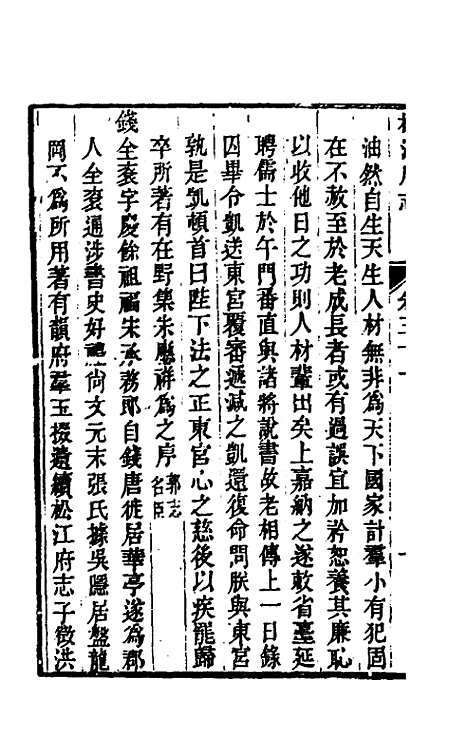 油然自生天生人材無非爲天下國家計羣小有犯固
在不赦至於老成長者或有過誤宜加矜恕養其廉恥
以收他日之功則人材輩出矣上嘉納之遂敕省臺延
聘儒士於午門番直與諸將說書故老相傳上一日錄
囚畢令凱送東宮覆審遞減之凱還復命問朕與東宮
孰是凱頓首曰陛下法之正東宮心之慈後以疾罷歸
卒所著有在野集朱應祥爲之序郭志名臣
錢全袞字慶餘祖福朱承務郎自錢唐徙居華亭遂爲郡
人全袞通涉書史好禮尚文元末張氏據吳隱居盤龍
岡不爲所用著有韻府羣玉掇遺續松江府志子徵洪